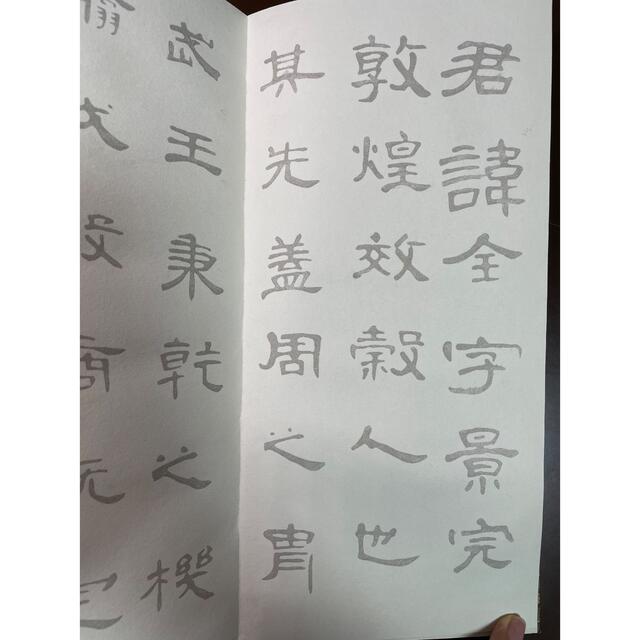 君諱全字景完
敦煌效穀人也
其先蓋周之胄
武王秉乾之機
翦伐殷商既定